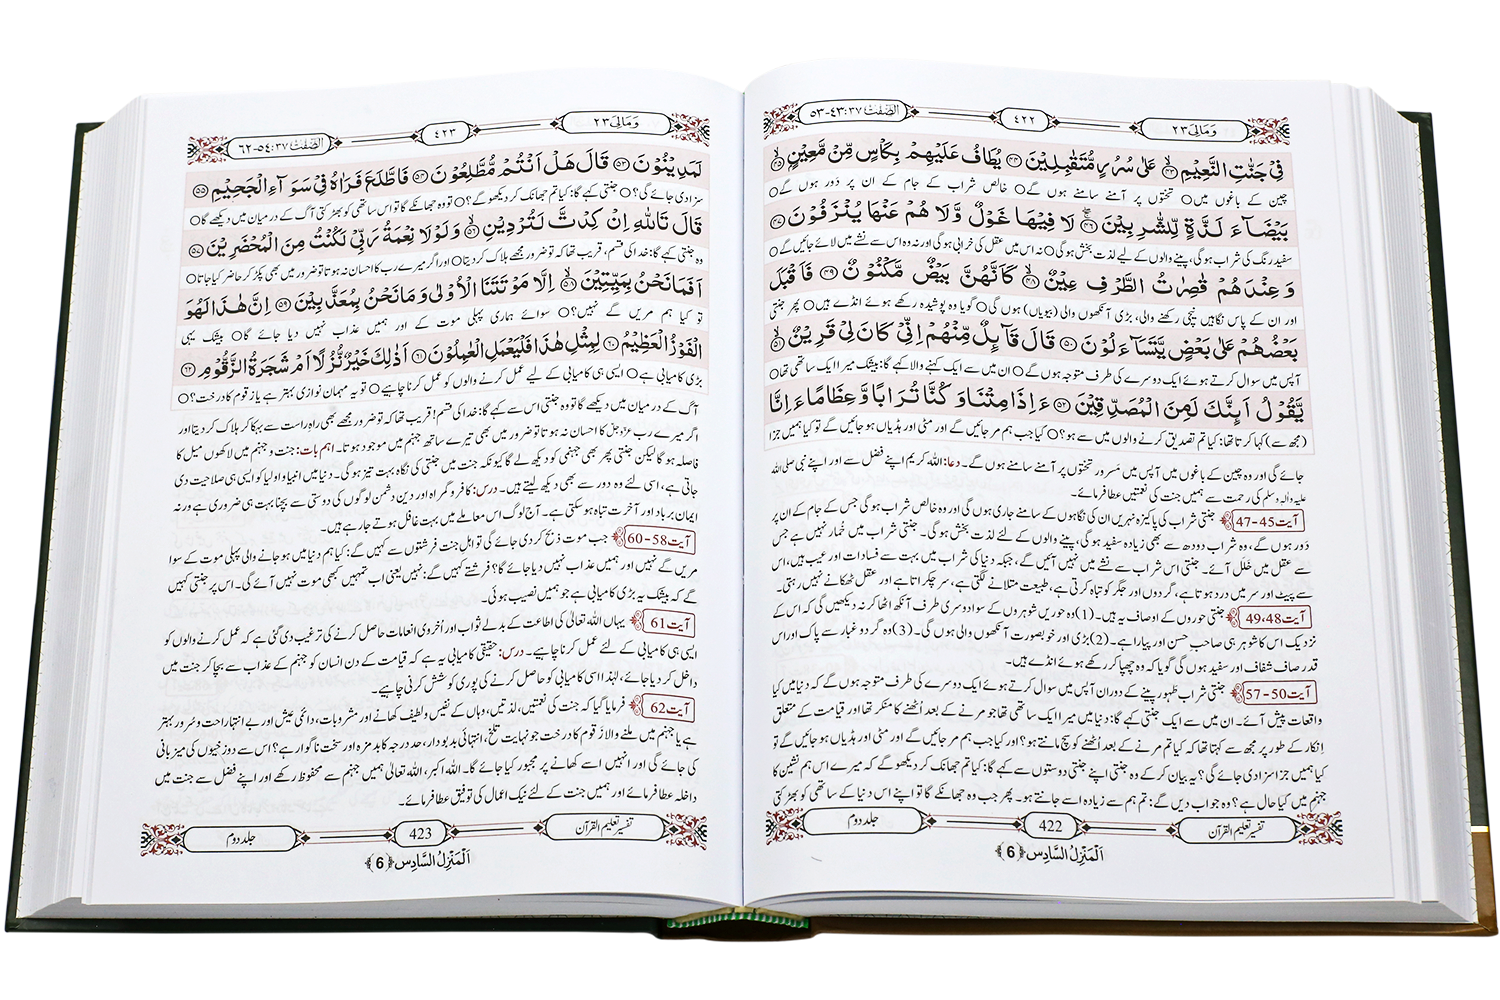 وَمَالِیَ ٢٣
٤٢٢
الصّٰفّٰت ٣٧: ٤٣-٥٣
فِیْ جَنّٰتِ النَّعِیْمِ ﴿٤٣﴾ عَلٰى سُرُرٍ مُّتَقٰبِلِیْنَ ﴿٤٤﴾ یُطَافُ عَلَیْهِمْ بِكَاْسٍ مِّنْ مَّعِیْنٍ ﴿٤٥﴾
چین کے باغوں میں ○ تختوں پر آمنے سامنے ہوں گے ○ خالص شراب کے جام کے ان پر دَور ہوں گے ○
بَیْضَآءَ لَذَّةٍ لِّلشّٰرِبِیْنَ ﴿٤٦﴾ لَا فِیْهَا غَوْلٌ وَّلَا هُمْ عَنْهَا یُنْزَفُوْنَ ﴿٤٧﴾
سفید رنگ کی شراب ہوگی، پینے والوں کے لیے لذت بخش ہوگی ○ نہ اس میں عقل کی خرابی ہوگی اور نہ وہ اس سے نشے میں لائے جائیں گے ○
وَعِنْدَهُمْ قٰصِرٰتُ الطَّرْفِ عِیْنٌ ﴿٤٨﴾ كَاَنَّهُنَّ بَیْضٌ مَّكْنُوْنٌ ﴿٤٩﴾ فَاَقْبَلَ
اور ان کے پاس نگاہیں نیچی رکھنے والی، بڑی آنکھوں والی (بیویاں) ہوں گی ○ گویا وہ پوشیدہ رکھے ہوئے انڈے ہیں ○ پھر جنتی
بَعْضُهُمْ عَلٰى بَعْضٍ یَّتَسَآءَلُوْنَ ﴿٥٠﴾ قَالَ قَآىِٕلٌ مِّنْهُمْ اِنِّیْ كَانَ لِیْ قَرِیْنٌ ﴿٥١﴾
آپس میں سوال کرتے ہوئے ایک دوسرے کی طرف متوجہ ہوں گے ○ ان میں سے ایک کہنے والا کہے گا: بیشک میرا ایک ساتھی تھا ○
یَّقُوْلُ اَىِٕنَّكَ لَمِنَ الْمُصَدِّقِیْنَ ﴿٥٢﴾ ءَاِذَا مِتْنَا وَكُنَّا تُرَابًا وَّعِظَامًا ءَاِنَّا
(مجھ سے) کہا کرتا تھا: کیا تم تصدیق کرنے والوں میں سے ہو؟ ○ کیا جب ہم مر جائیں گے اور مٹی اور ہڈیاں ہو جائیں گے تو کیا ہمیں جزا
جائے گی اور وہ چین کے باغوں میں آپس میں مسرور تختوں پر آمنے سامنے ہوں گے۔ دعا: اللہ کریم اپنے فضل سے اور اپنے نبی صلی اللہ
علیہ والہ وسلم کی رحمت سے ہمیں جنت کی نعمتیں عطا فرمائے۔
آیت 45-47 جنتی شراب کی پاکیزہ نہریں ان کی نگاہوں کے سامنے جاری ہوں گی اور وہ خالص شراب ہوگی جس کے جام کے ان پر
دَور ہوں گے، وہ شراب دودھ سے بھی زیادہ سفید ہوگی، پینے والوں کے لئے لذت بخش ہوگی۔ جنتی شراب میں خُمار نہیں ہے جس
سے عقل میں خَلَل آئے۔ جنتی اس شراب سے نشے میں نہیں آئیں گے، جبکہ دنیا کی شراب میں بہت سے فسادات اور عیب ہیں، اس
سے پیٹ اور سر میں درد ہوتا ہے، گردوں اور جگر کو تباہ کرتی ہے، طبیعت متلانے لگتی ہے، سر چکراتا ہے اور عقل ٹھکانے نہیں رہتی۔
آیت 49،48 جنتی حوروں کے اوصاف یہ ہیں۔ (1) وہ حوریں شوہروں کے سوا دوسری طرف آنکھ اٹھا کر نہ دیکھیں گی کہ اس کے
نزدیک اس کا شوہر ہی صاحبِ حسن اور پیارا ہے۔ (2) بڑی اور خوبصورت آنکھوں والی ہوں گی۔ (3) وہ گرد و غبار سے پاک اور اس
قدر صاف شفاف اور سفید ہوں گی گویا کہ وہ چھپا کر رکھے ہوئے انڈے ہیں۔
آیت 50-57 جنتی شراب طہور پینے کے دوران آپس میں سوال کرتے ہوئے ایک دوسرے کی طرف متوجہ ہوں گے کہ دنیا میں کیا
واقعات پیش آئے۔ ان میں سے ایک جنتی کہے گا: دنیا میں میرا ایک ساتھی تھا جو مرنے کے بعد اُٹھنے کا منکر تھا اور قیامت کے متعلق
اِنکار کے طور پر مجھ سے کہتا تھا کہ کیا تم مرنے کے بعد اُٹھنے کو سچ مانتے ہو؟ اور کیا جب ہم مر جائیں گے اور مٹی اور ہڈیاں ہو جائیں گے تو
کیا ہمیں جزا سزا دی جائے گی؟ یہ بیان کر کے وہ جنتی اپنے جنتی دوستوں سے کہے گا: کیا تم جھانک کر دیکھو گے کہ میرے اس ہم نشین کا
جہنم میں کیا حال ہے؟ وہ جواب دیں گے: تم ہم سے زیادہ اسے جانتے ہو۔ پھر جب وہ جھانکے گا تو اپنے اس دنیا کے ساتھی کو بھڑکتی
تفسیر تعلیم القرآن
422
جلد دوم
اَلْمَنْزِلُ السَّادِس ﴿6﴾
وَمَالِیَ ٢٣
٤٢٣
الصّٰفّٰت ٣٧: ٥٤-٦٢
لَمَدِیْنُوْنَ ﴿٥٣﴾ قَالَ هَلْ اَنْتُمْ مُّطَّلِعُوْنَ ﴿٥٤﴾ فَاطَّلَعَ فَرَاٰهُ فِیْ سَوَآءِ الْجَحِیْمِ ﴿٥٥﴾
سزا دی جائے گی؟ ○ جنتی کہے گا: کیا تم جھانک کر دیکھو گے؟ ○ تو وہ جھانکے گا تو اس ساتھی کو بھڑکتی آگ کے درمیان میں دیکھے گا ○
قَالَ تَاللّٰهِ اِنْ كِدْتَّ لَتُرْدِیْنِ ﴿٥٦﴾ وَلَوْلَا نِعْمَةُ رَبِّیْ لَكُنْتُ مِنَ الْمُحْضَرِیْنَ ﴿٥٧﴾
وہ جنتی کہے گا: خدا کی قسم، قریب تھا کہ تو ضرور مجھے ہلاک کر دیتا ○ اور اگر میرے رب کا احسان نہ ہوتا تو ضرور میں بھی پکڑ کر حاضر کیا جاتا ○
اَفَمَا نَحْنُ بِمَیِّتِیْنَ ﴿٥٨﴾ اِلَّا مَوْتَتَنَا الْاُوْلٰى وَمَا نَحْنُ بِمُعَذَّبِیْنَ ﴿٥٩﴾ اِنَّ هٰذَا لَهُوَ
تو کیا ہم مریں گے نہیں؟ ○ سوائے ہماری پہلی موت کے اور ہمیں عذاب نہیں دیا جائے گا ○ بیشک یہی
الْفَوْزُ الْعَظِیْمُ ﴿٦٠﴾ لِمِثْلِ هٰذَا فَلْیَعْمَلِ الْعٰمِلُوْنَ ﴿٦١﴾ اَذٰلِكَ خَیْرٌ نُّزُلًا اَمْ شَجَرَةُ الزَّقُّوْمِ ﴿٦٢﴾
بڑی کامیابی ہے ○ ایسی ہی کامیابی کے لیے عمل کرنے والوں کو عمل کرنا چاہیے ○ تو یہ مہمان نوازی بہتر ہے یا زقوم کا درخت؟ ○
آگ کے درمیان میں دیکھے گا تو وہ جنتی اس سے کہے گا: خدا کی قسم! قریب تھا کہ تو ضرور مجھے بھی راہِ راست سے بہکا کر ہلاک کر دیتا اور
اگر میرے رب عزوجل کا احسان نہ ہوتا تو ضرور میں بھی تیرے ساتھ جہنم میں موجود ہوتا۔ اہم بات: جنت و جہنم میں لاکھوں میل کا
فاصلہ ہوگا لیکن جنتی پھر بھی جہنمی کو دیکھ لے گا کیونکہ جنت میں جنتی کی نگاہ بہت تیز ہوگی۔ دنیا میں انبیا و اولیا کو ایسی ہی صلاحیت دی
جاتی ہے، اسی لئے وہ دور سے بھی دیکھ لیتے ہیں۔ درس: کافر و گمراہ اور دین دشمن لوگوں کی دوستی سے بچنا بہت ہی ضروری ہے ورنہ
ایمان برباد اور آخرت تباہ ہو سکتی ہے۔ آج لوگ اس معاملے میں بہت غافل ہوتے جا رہے ہیں۔
آیت 58-60 جب موت ذبح کر دی جائے گی تو اہل جنت فرشتوں سے کہیں گے: کیا ہم دنیا میں ہو جانے والی پہلی موت کے سوا
مریں گے نہیں اور ہمیں عذاب نہیں دیا جائے گا؟ فرشتے کہیں گے: نہیں یعنی اب تمہیں کبھی موت نہیں آئے گی۔ اس پر جنتی کہیں
گے کہ بیشک یہ بڑی کامیابی ہے جو ہمیں نصیب ہوئی۔
آیت 61 یہاں اللہ تعالیٰ کی اطاعت کے بدلے ثواب اور اُخروی انعامات حاصل کرنے کی ترغیب دی گئی ہے کہ عمل کرنے والوں کو
ایسی ہی کامیابی کے لئے عمل کرنا چاہیے۔ درس: حقیقی کامیابی یہ ہے کہ قیامت کے دن انسان کو جہنم کے عذاب سے بچا کر جنت میں
داخل کر دیا جائے، لہٰذا اسی کامیابی کو حاصل کرنے کی پوری کوشش کرنی چاہیے۔
آیت 62 فرمایا گیا کہ جنت کی نعمتیں، لذتیں، وہاں کے نفیس و لطیف کھانے اور مشروبات، دائمی عیش اور بے انتہا راحت و سُرور بہتر
ہے یا جہنم میں ملنے والا زقوم کا درخت جو نہایت تلخ، انتہائی بدبودار، حد درجہ کا بدمزہ اور سخت ناگوار ہے؟ اس سے دوزخیوں کی میزبانی
کی جائے گی اور انہیں اسے کھانے پر مجبور کیا جائے گا۔ اللہ اکبر، اللہ تعالیٰ ہمیں جہنم سے محفوظ رکھے اور اپنے فضل سے جنت میں
داخلہ عطا فرمائے اور ہمیں جنت کے لئے نیک اعمال کی توفیق عطا فرمائے۔
تفسیر تعلیم القرآن
423
جلد دوم
اَلْمَنْزِلُ السَّادِس ﴿6﴾